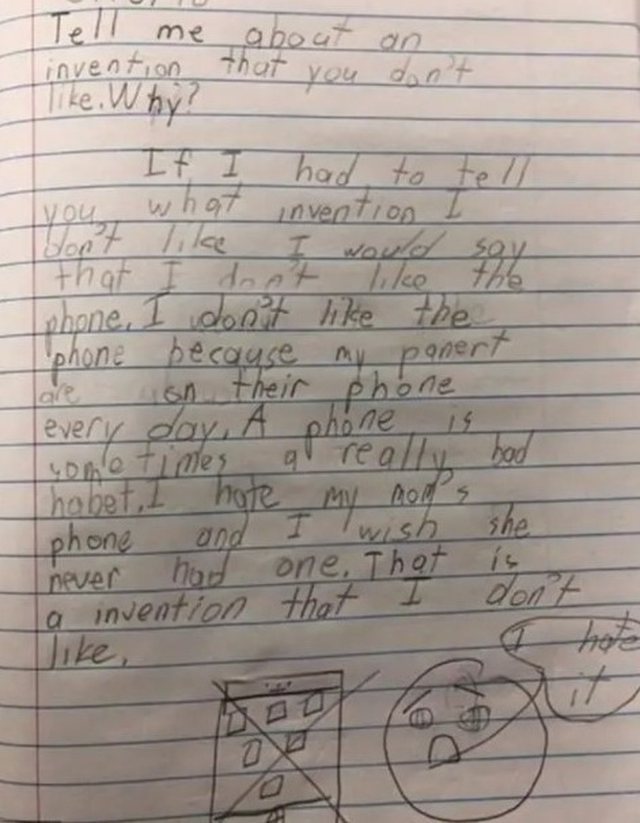 Tell me about an
invention that you don't
like. Why?
If I had to tell
you what invention I
don't like I would say
that I don't like the
phone. I don't like the
phone because my panert
are on their phone
every day. A phone is
sometimes a really bad
habet. I hate my mom's
phone and I wish she
never had one. That is
a invention that I don't
like.
I hate
it